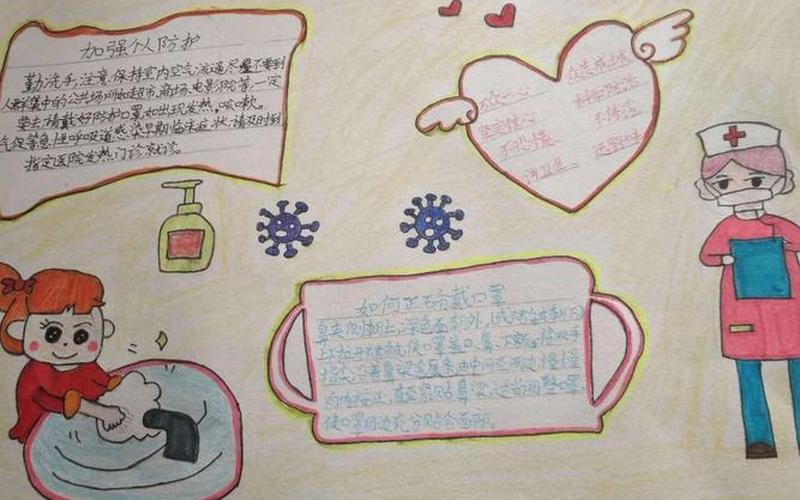 加强个人防护
勤洗手,注意保持室内空气流通尽量不要到
人群集中的公共场所如超市,商场,电影院等,一定
要去,请戴好防护口罩,如出现发热,咳嗽,
气促等急性呼吸道感染早期临床症状,请及时到
指定医院发热门诊就诊。
万众一心 众志成城
坚定信心 科学防治
不恐惧 不传谣
讲卫生 远野味
如何正确戴口罩
鼻夹侧朝上,深色面朝外,
上下拉开褶皱,使口罩盖口、鼻、下颌,将双手
指尖 鼻夹 由中间 两边慢慢
向内按压,直至紧贴鼻梁,适当调整口罩,
使口罩周边充分贴合面部。